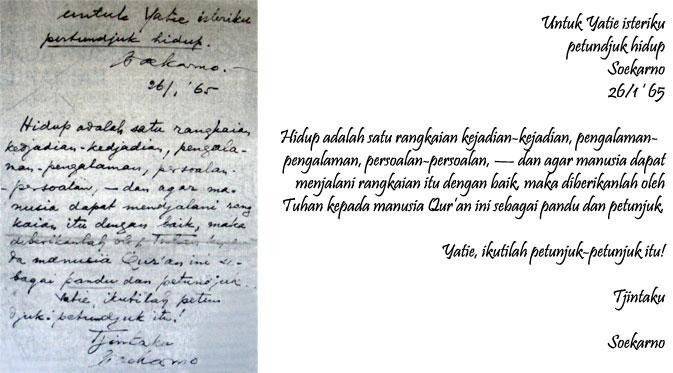 untuk Yatie isteriku
pertundjuk hidup.
Soekarno.—
26/1,'65
Hidup adalah satu rangkaian
kedjadian-kedjadian, pengala-
man-pengalaman, persoalan-
-persoalan, — dan agar ma-
nusia dapat mendjalani rang
kaian itu dengan baik, maka
diberikanlah oleh Tuhan kepa
da manusia Qur'an ini se-
bagai pandu dan petundjuk.
Yatie, ikutilah petun
djuk-petundjuk itu!
Tjintaku
Soekarno
Untuk Yatie isteriku
petundjuk hidup
Soekarno
26/1 '65
Hidup adalah satu rangkaian kejadian-kejadian, pengalaman-
pengalaman, persoalan-persoalan, — dan agar manusia dapat
menjalani rangkaian itu dengan baik, maka diberikanlah oleh
Tuhan kepada manusia Qur'an ini sebagai pandu dan petunjuk.
Yatie, ikutilah petunjuk-petunjuk itu!
Tjintaku
Soekarno